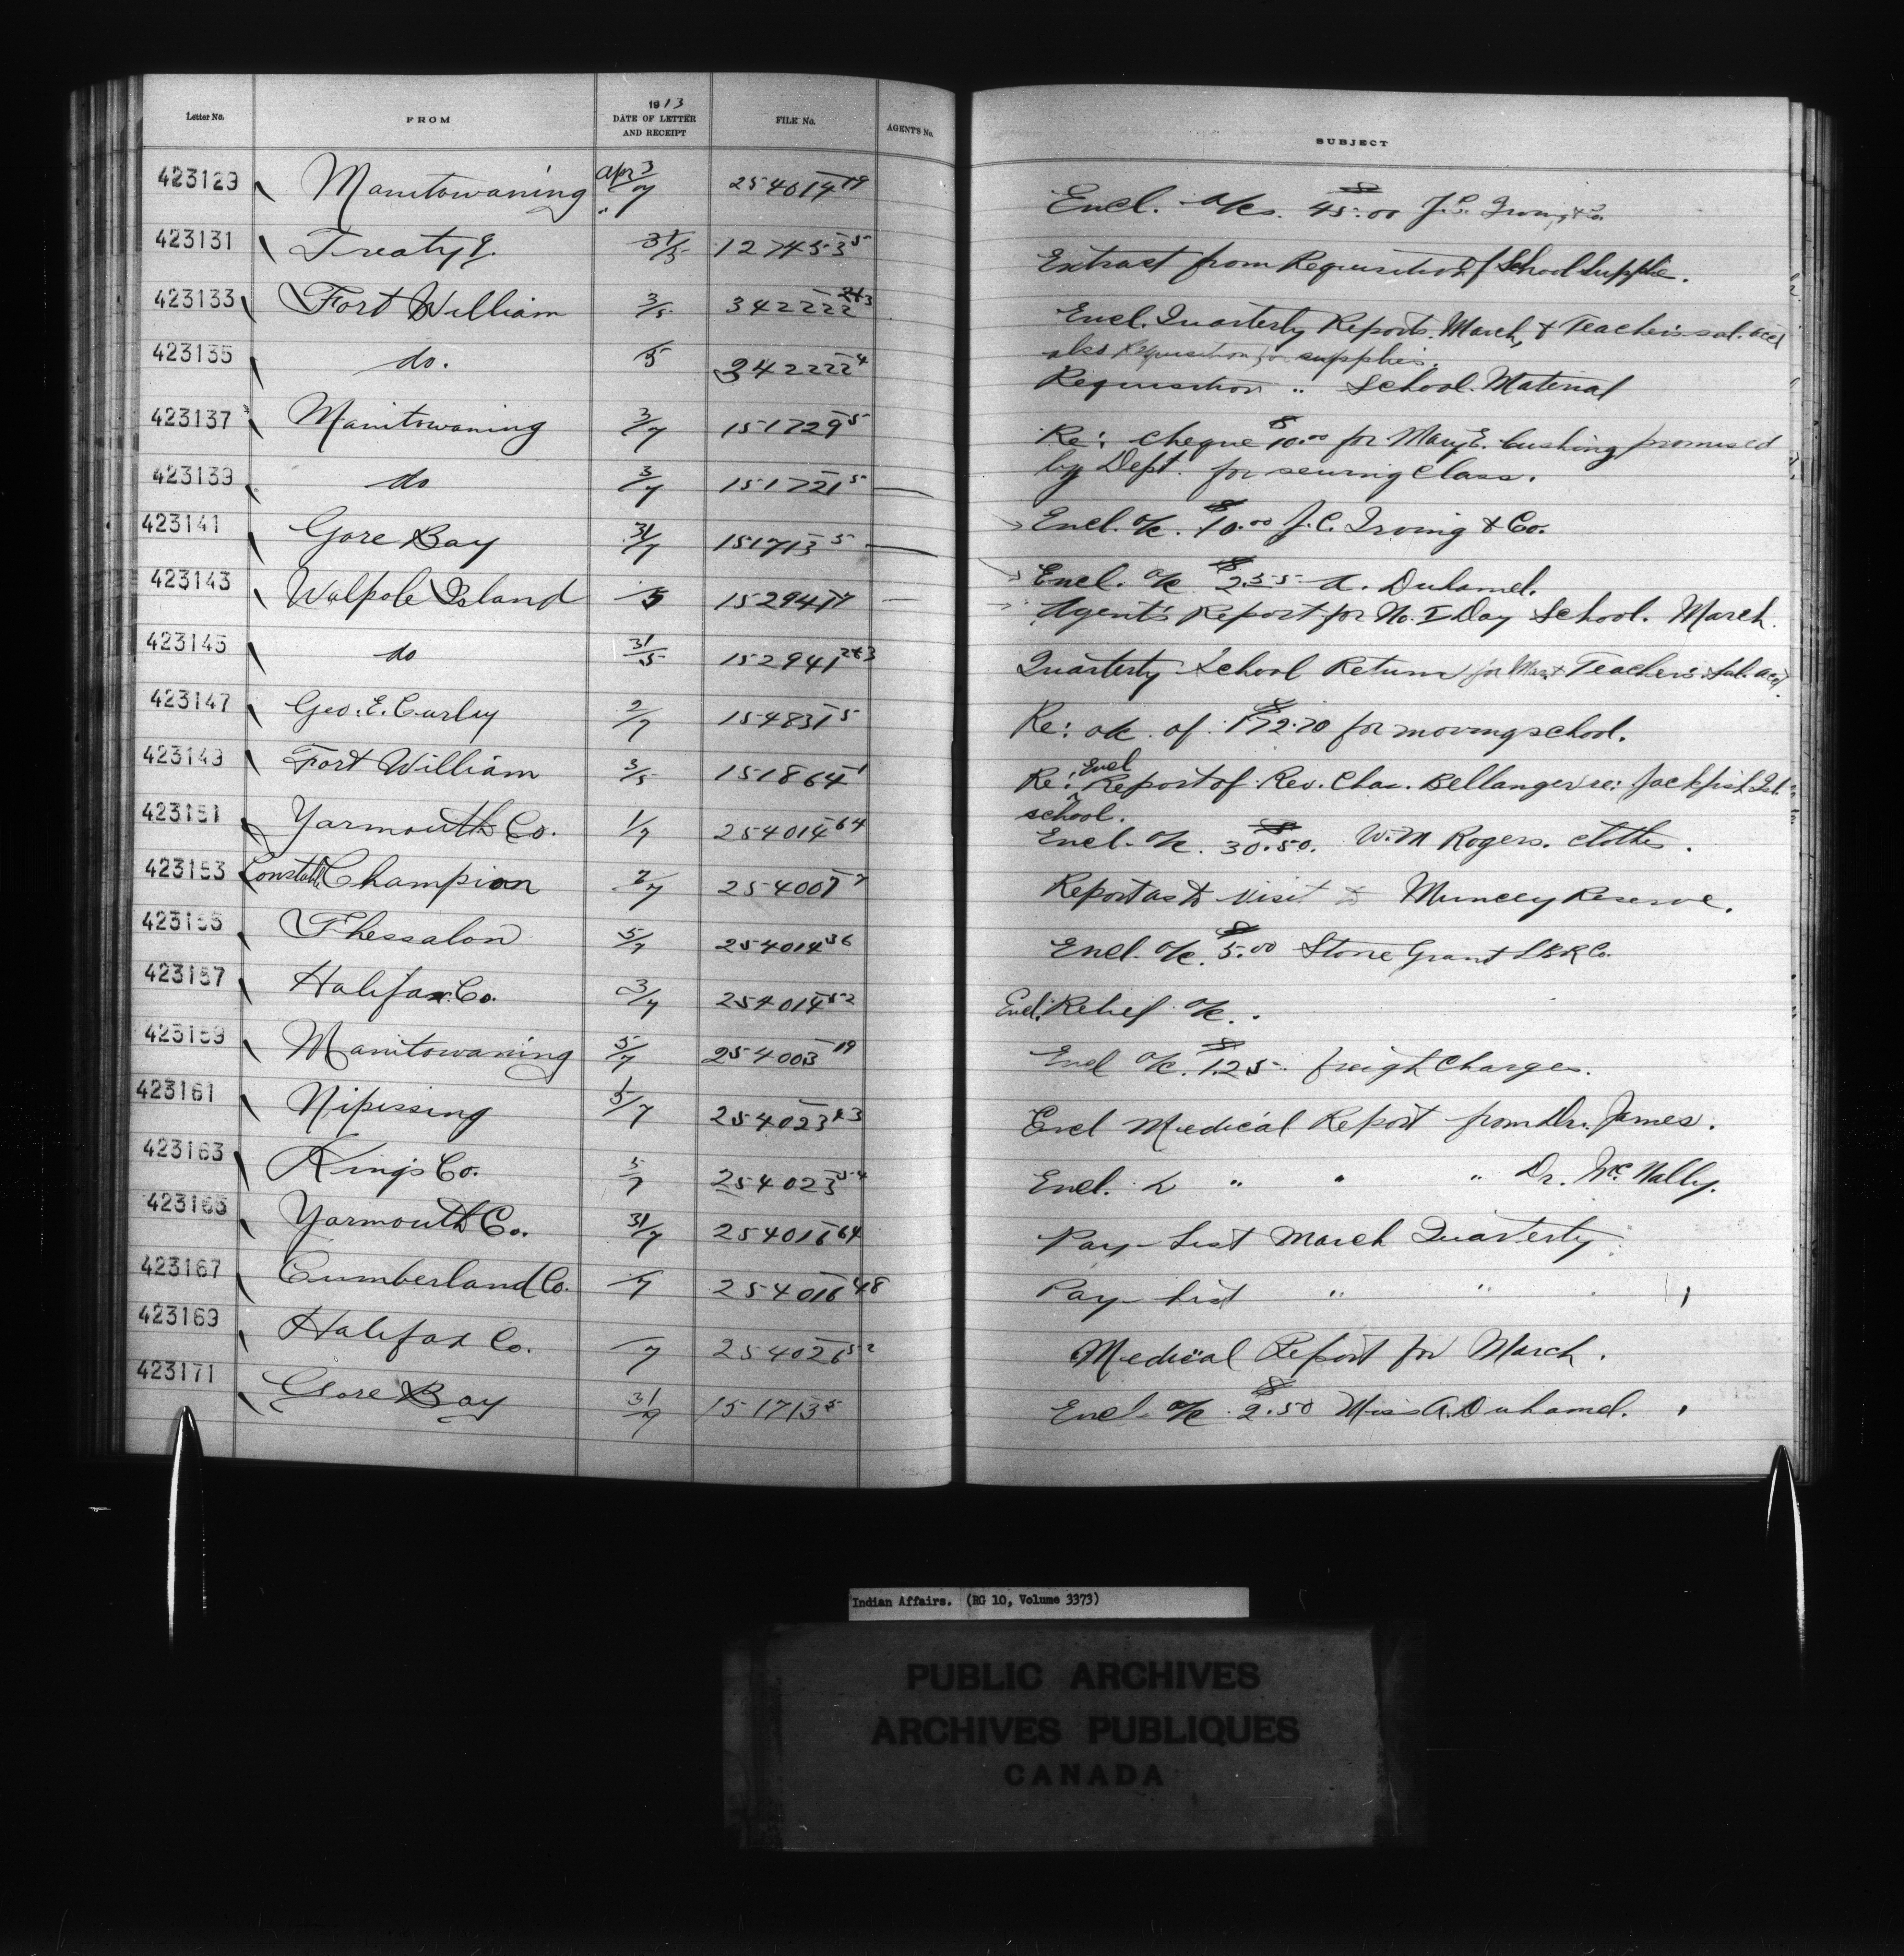 Letter No. FROM 1913 DATE OF LETTER AND RECEIPT FILE No. AGENT'S No. SUBJECT
423129 Manitowaning Apr 3/7 254014-19 Encl. a/cs. $45.00 J.C. Irving & Co.
423131 Treaty 9. 31/5 127453-5 Extract from Requisition of School Supplie.
423133 Fort William 3/5 342222-2&3 Encl. Quarterly Reports. March, & Teacher's sal. acct
also Requisition for supplies.
423135 do. 5 342222-4 Requisition " School Material
423137 Manitowaning 3/7 151729-5 Re: cheque $10.00 for Mary E. Cushing promised
by Dept. for sewing class.
423139 do 3/7 151721-5 Encl. a/c. $10.00 J.C. Irving & Co.
423141 Gore Bay 31/7 151713-5 Encl. a/c $2.55 A. Duhamel.
423143 Walpole Island 5 152941- Agent's Report for No. I Day School. March.
423145 do 31/5 152941-2&3 Quarterly School Return for Mar. & Teachers Sal. acct.
423147 Geo. E. Curley 2/7 154831-5 Re: a/c. of $172.70 for moving school.
423149 Fort William 3/5 151864-1 Re: Encl Report of Rev. Chas. Bellanger re: Jackfish Isl.
school.
423151 Yarmouth Co. 1/7 254014-64 Encl. a/c. $30.50. W.M Rogers. clothes.
423153 Constable Champion 2/7 254007-7 Report as to visit to Muncey Reserve.
423155 Thessalon 5/7 254014-36 Encl. a/c. $5.00 Stone Grant
423157 Halifax Co. 3/7 254014-52 Encl. Relief a/c.
423159 Manitowaning 5/7 254003-19 Encl a/c. $1.25 freight Charges.
423161 Nipissing 5/7 254023-23 Encl Medical Report from Dr. James.
423163 Kings Co. 5/7 254023-54 Encl. 2 " " " Dr. McNally.
423165 Yarmouth Co. 31/7 254016-64 Pay-List March Quarterly
423167 Cumberland Co. 7 254016-48 Pay-List " "
423169 Halifax Co. 7 254026-52 Medical Report for March.
423171 Gore Bay 31/7 151713-5 Encl. a/c. $2.50 Miss A. Duhamel.
Indian Affairs. (RG 10, Volume 3373)
PUBLIC ARCHIVES
ARCHIVES PUBLIQUES
CANADA